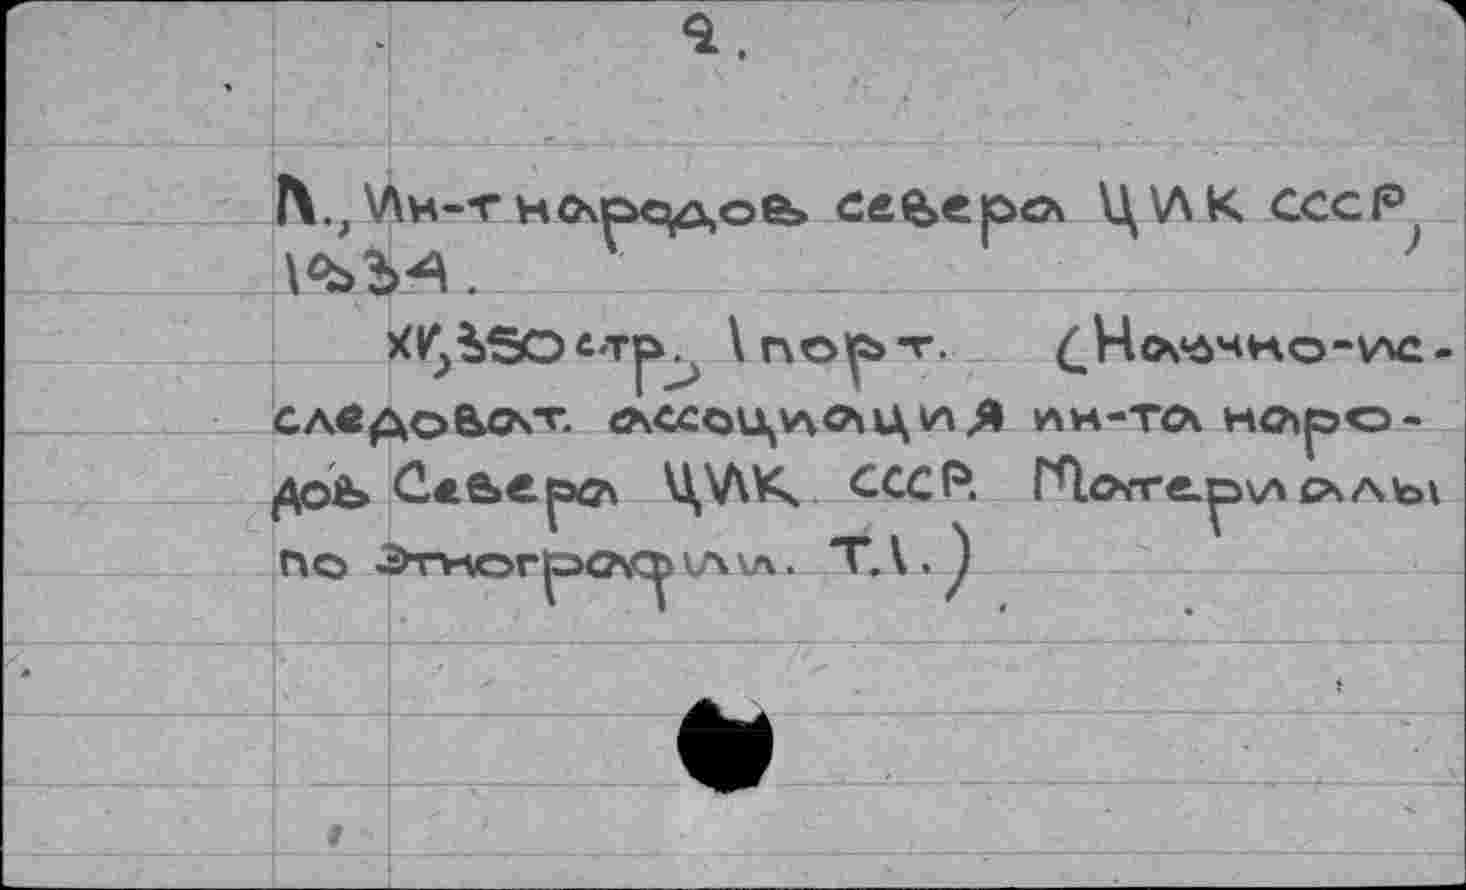 2.
Л., Ин-т народов севера ЦИК СССР,
1934.
XV, 350 стр., 1 портр. (Научно-ис-
следоват. ассоциация ин-та наро-
дов Севера ЦИК СССР. Материалы
по этнографии. Т.1.)